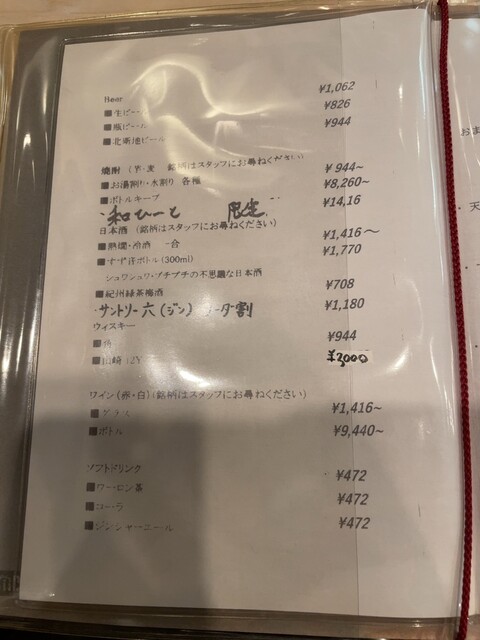 Beer
■生ビール ¥1,062
■瓶ビール ¥826
■北新地ビール ¥944
焼酎 (芋・麦 銘柄はスタッフにお尋ねください)
■お湯割り・水割り 各種 ¥944~
■ボトルキープ ¥8,260~
和ひーと 限定 ¥14,16
日本酒 (銘柄はスタッフにお尋ねください)
■熱燗・冷酒 一合 ¥1,416~
(300ml) ¥1,770
シュワシュワ・プチプチの不思議な日本酒
■紀州緑茶梅酒 ¥708
・サントリー六(ジン) ソーダ割 ¥1,180
ウィスキー
■角 ¥944
■山崎 12年 ¥3000
ワイン (赤・白) (銘柄はスタッフにお尋ねください)
■グラス ¥1,416~
■ボトル ¥9,440~
ソフトドリンク
■ウーロン茶 ¥472
■コーラ ¥472
■ジンジャーエール ¥472